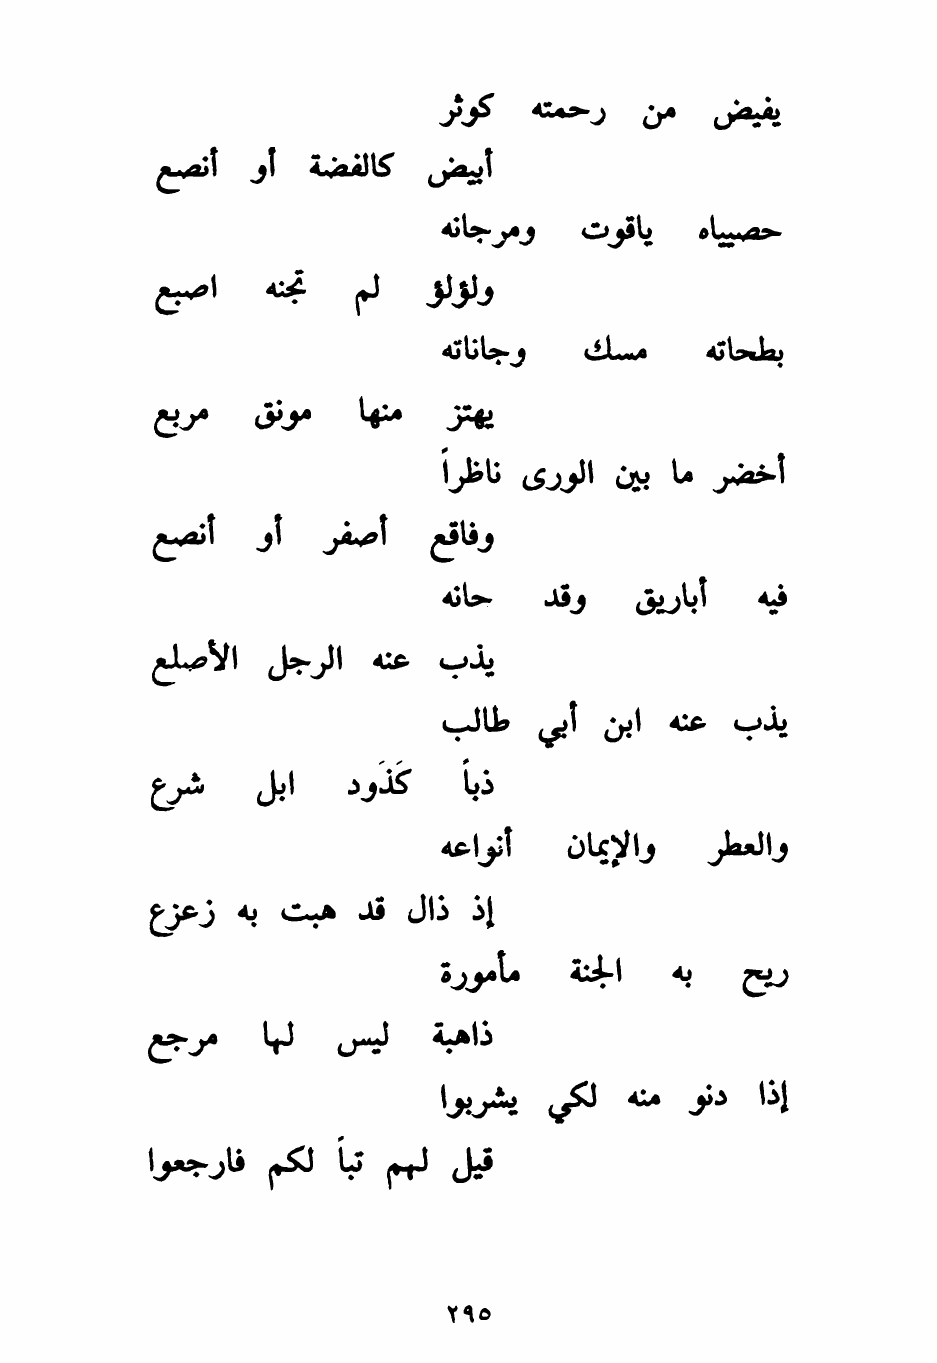 يفيض من رحمته كوثر
أبيض كالفضة أو أنصع
حصيياه ياقوت ومرجانه
ولؤلؤ لم تجنه اصبع
بطحاته مسك وجاناته
يهتز منها مونق مربع
أخضر ما بين الورى ناظراً
وفاقع أصفر أو أنصع
فيه أباريق وقد حانه
يذب عنه الرجل الأصلع
يذب عنه ابن أبي طالب
ذباً كَذَود ابل شرع
والعطر والإيمان أنواعه
إذ ذال قد هبت به زعزع
ريح به الجنة مأمورة
ذاهبة ليس لها مرجع
إذا دنو منه لكي يشربوا
قيل لهم تباً لكم فارجعوا
٢٩٥